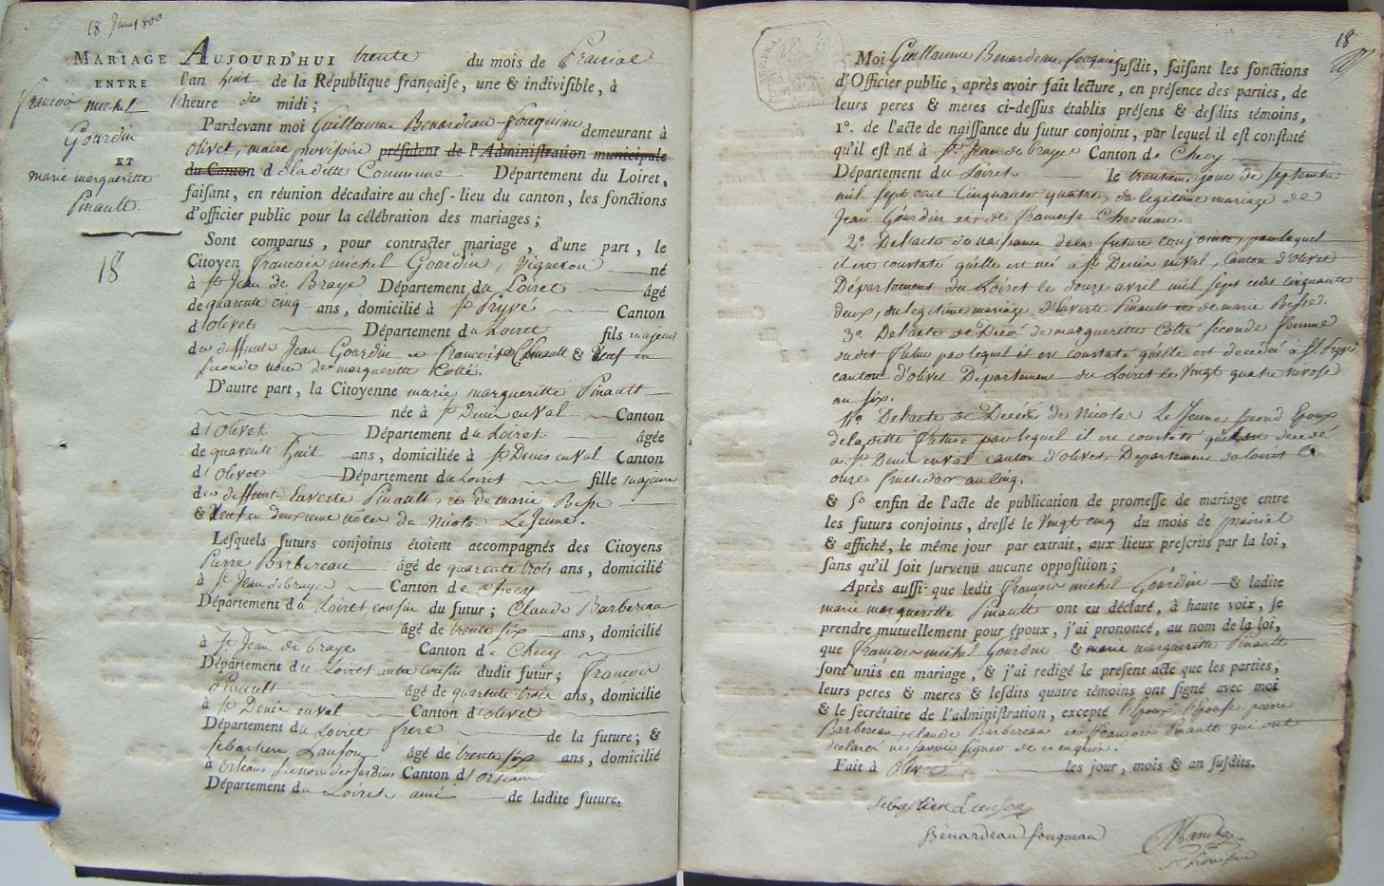 18 Juin 1800
MARIAGE
ENTRE
françois
michel
Gourdin
ET
marie margueritte
Pinault
18
AUJOURD'HUI trente du mois de Prairial
l'an huit de la République française, une & indivisible, à
l'heure de midi;
Pardevant moi Guillaume Benardeau-fougneau demeurant à
olivet, maire provisoire président de l'Administration municipale
du Canton de la ditte Commune Département du Loiret,
faisant, en réunion décadaire au chef-lieu du canton, les fonctions
d'officier public pour la célébration des mariages;
Sont comparus, pour contracter mariage, d'une part, le
Citoyen françois michel Gourdin, vigneron né
à St Jean de Braye Département du Loiret âgé
de quarente cinq ans, domicilié à St Pryvé Canton
d'olivet Département du Loiret fils majeur
des deffunts Jean Gourdin et françoise & veuf en
seconde noce de margueritte Cotté.
D'autre part, la Citoyenne marie margueritte Pinault
née à St Denis en Val Canton
d'olivet Département du Loiret âgée
de quarente huit ans, domiciliée à St Denis en Val Canton
d'olivet Département du Loiret fille majeure
des deffunts Pinault, et de marie
& veuve en deuxieme noces de Nicolas LeJeune.
Lesquels futurs conjoints étoient accompagnés des Citoyens
Pierre Barbereau âgé de quarente trois ans, domicilié
à St Jean de braye Canton de checy
Département du Loiret cousin du futur; Claude Barbereau
âgé de trente six ans, domicilié
à St Jean de braye Canton de Checy
Département du Loiret cousin dudit futur; françois
Pinault âgé de quarente trois ans, domicilié
à St Denis en Val Canton d'olivet
Département du Loiret frere de la future; &
Sebastien âgé de trente six ans, domicilié
à orleans Canton d'orleans
Département du Loiret ami de ladite future.
18
Moi Guillaume Benardeau fougneau susdit, faisant les fonctions
d'Officier public, après avoir fait lecture, en présence des parties, de
leurs peres & meres ci-dessus établis présens & desdits témoins,
1°. de l'acte de naissance du futur conjoint, par lequel il est constaté
qu'il est né à St Jean de braye Canton de Checy
Département du Loiret le jour de septembre
mil sept cent Cinquante quatre, du legitime mariage de
Jean Gourdin et de françoise
2° De l'acte de naissance de la future conjointe, par lequel
il est constaté qu'elle est née à St Denis en Val, Canton d'olivet
Département du Loiret le douze avril mil sept cent cinquante
deux, du legitime mariage Pinault et de marie
3° De l'acte de Décé de margueritte Cotté seconde femme
du dit futur par lequel il est constaté qu'elle est decedée à St Pryvé
canton d'olivet Departement du Loiret le vingt quatre nivose
an six.
De l'acte de Décés de Nicolas LeJeune second Epoux
de laditte future par lequel il est constaté qu'il est decedé
à St Denis en Val canton d'olivet Departement du loiret le
onze fructidor an cinq.
& 5° enfin de l'acte de publication de promesse de mariage entre
les futurs conjoints, dressé le vingt cinq du mois de prairial
& affiché, le même jour par extrait, aux lieux prescrits par la loi,
sans qu'il soit survenu aucune opposition;
Après aussi que ledit françois michel Gourdin & ladite
marie margueritte Pinault ont eu déclaré, à haute voix, se
prendre mutuellement pour époux, j'ai prononcé, au nom de la loi,
que françois michel Gourdin & marie margueritte Pinault
sont unis en mariage, & j'ai redigé le présent acte que les parties,
leurs peres & meres & lesdits quatre témoins ont signé avec moi
& le secrétaire de l'administration, excepté l'époux l'épouse pierre
Barbereau, claude Barbereau et françois Pinault qui ont
declaré ne savoir signer de ce enquis.
Fait à olivet les jour, mois & an susdits.
Sebastien
Benardeau fougneau